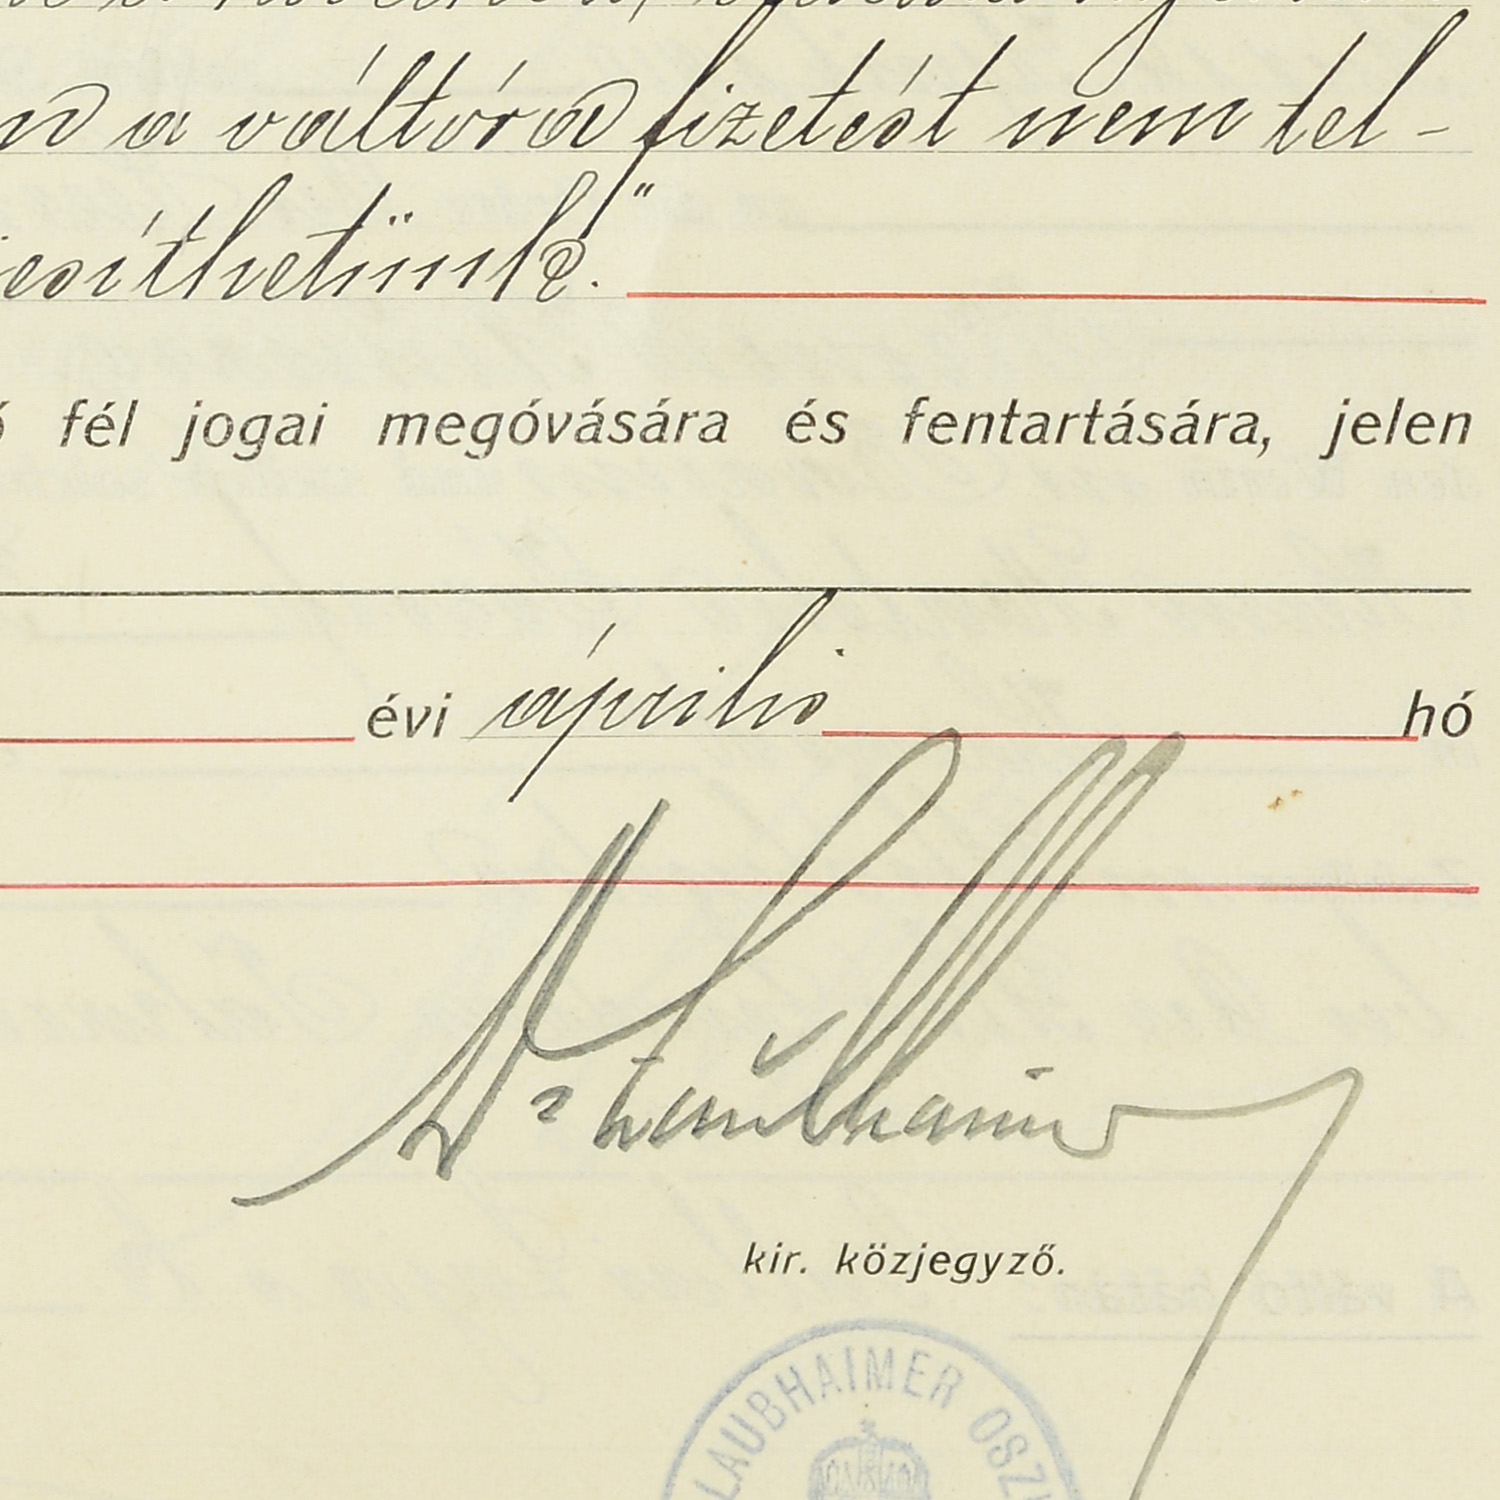 a váltóra fizetést nem tel-
jesíthetünk."
fél jogai megóvására és fentartására, jelen
évi április hó
Dr Laubhaimer
kir. közjegyző.
LAUBHAIMER OSZK